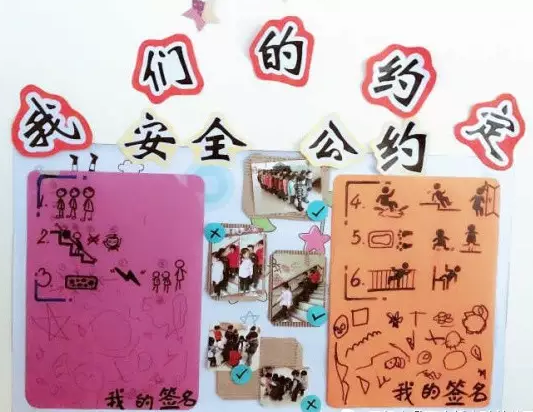 我们的约定
安全公约
1.
2.
3.
我的签名
4.
5.
6.
我的签名